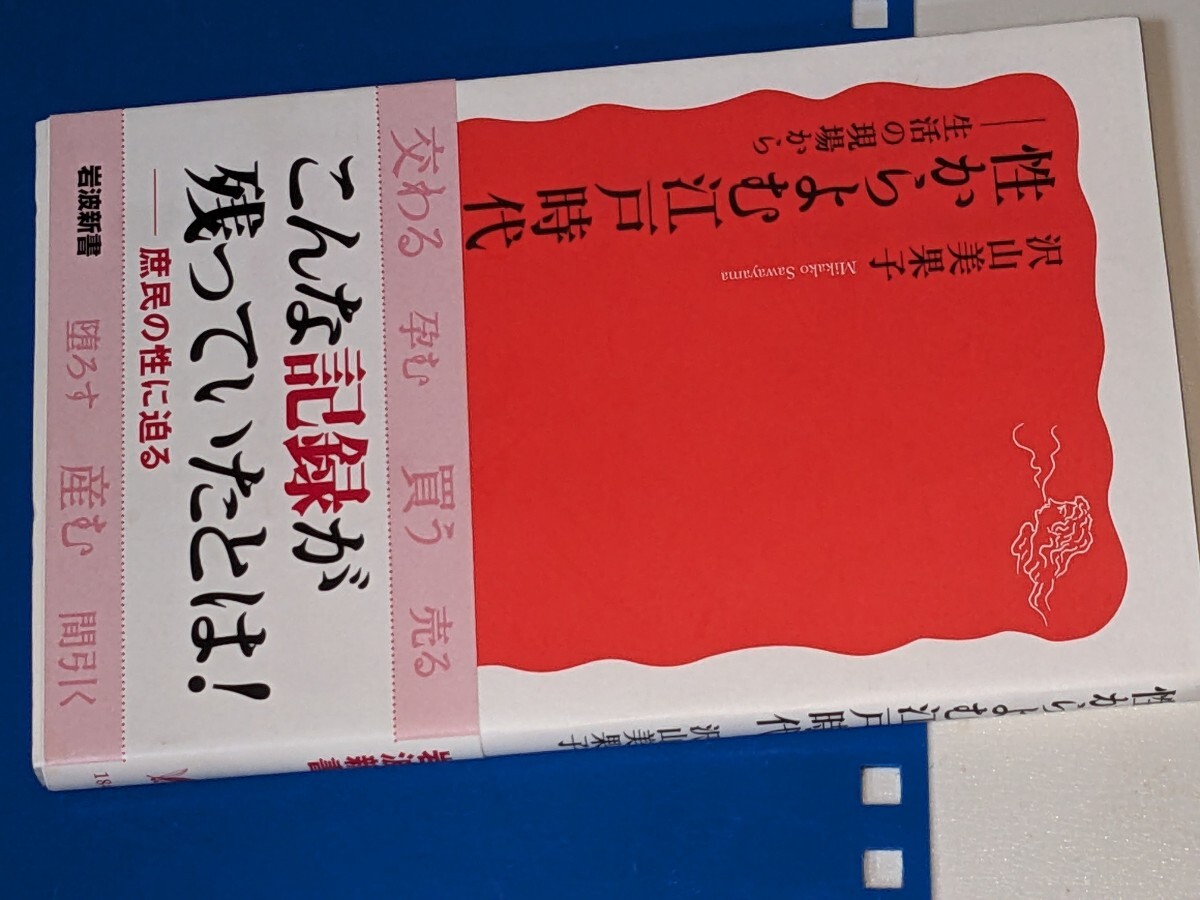 性からよむ江戸時代
――生活の現場から
沢山美果子
Mikako Sawayama
交わる 孕む 買う 売る
こんな記録が
残っていたとは!
――庶民の性に迫る
岩波新書
堕ろす 産む 間引く
性からよむ江戸時代 沢山美果子
岩波新書
18